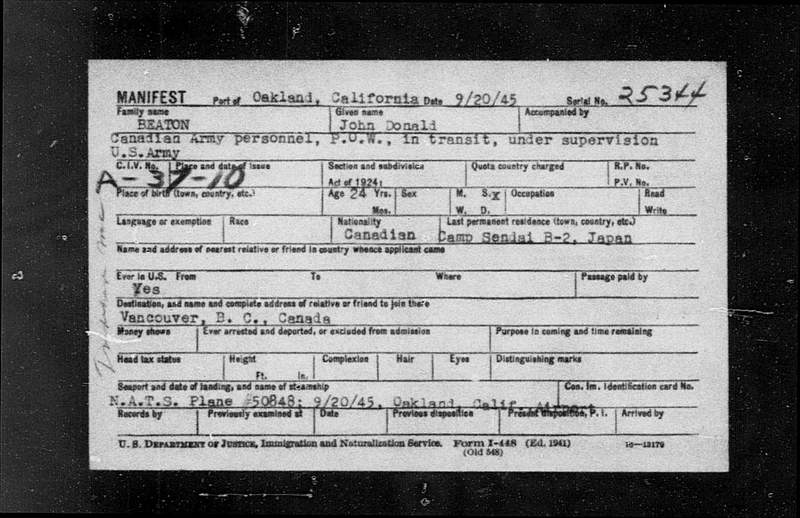 MANIFEST Port of Oakland, California Date 9/20/45 Serial No. 25344
Family name Given name Accompanied by
BEATON John Donald
Canadian Army personnel, P.O.W., in transit, under supervision
U.S.Army
C.I.V. No. Place and date of issue Section and subdivision Quota country charged R.P. No.
A-37-10 Act of 1924: P.V. No.
Place of birth (town, country, etc.) Age 24 Yrs. Sex M. S. x Occupation Read
Mos. W. D. Write
Language or exemption Race Nationality Last permanent residence (town, country, etc.)
Canadian Camp Sendai B-2, Japan
Name and address of nearest relative or friend in country whence applicant came
Ever in U.S. From To Where Passage paid by
Yes
Destination, and name and complete address of relative or friend to join there
Vancouver, B. C., Canada
Money shown Ever arrested and deported, or excluded from admission Purpose in coming and time remaining
Head tax status Height Complexion Hair Eyes Distinguishing marks
Ft. In.
Seaport and date of landing, and name of steamship Con. Im. Identification card No.
N.A.T.S. Plane #50848; 9/20/45, Oakland, Calif. Airport
Records by Previously examined at Date Previous disposition Present disposition, P. I. Arrived by
U. S. DEPARTMENT OF JUSTICE, Immigration and Naturalization Service. Form I-448 (Ed. 1941) 16—13179
(Old 548)